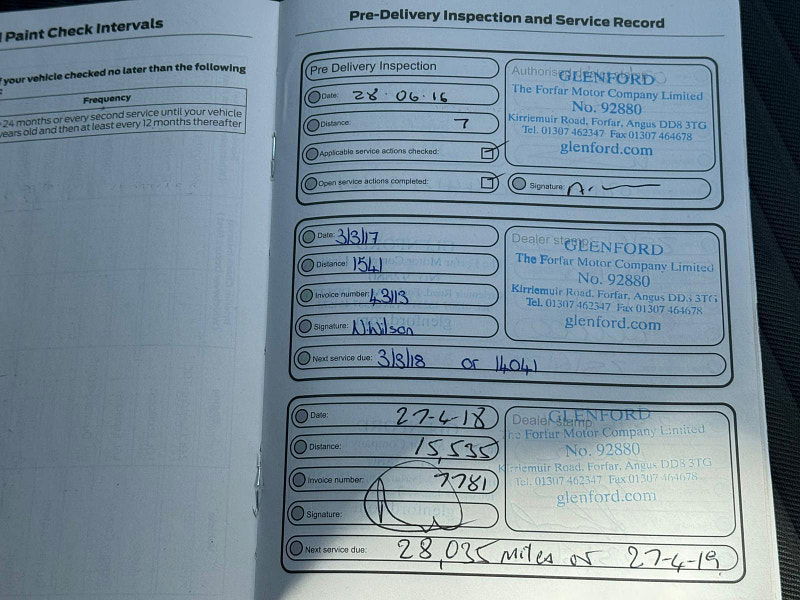 Paint Check Intervals
f your vehicle checked no later than the following
Frequency
24 months or every second service until your vehicle
years old and then at least every 12 months thereafter
Pre-Delivery Inspection and Service Record
Pre Delivery Inspection
Date: 28.06.16
Distance: 7
Applicable service actions checked:
Open service actions completed:
Authorised
GLENFORD
The Forfar Motor Company Limited
No. 92880
Kirriemuir Road, Forfar, Angus DD8 3TG
Tel. 01307 462347 Fax 01307 464678
glenford.com
Signature:
Date: 3/3/17
Distance: 1541
Invoice number: 4313
Signature: N.Wilson
Next service due: 3/3/18 or 14041
Dealer stamp
GLENFORD
The Forfar Motor Company Limited
No. 92880
Kirriemuir Road, Forfar, Angus DD8 3TG
Tel. 01307 462347 Fax 01307 464678
glenford.com
Date: 27-4-18
Distance: 15,535
Invoice number: 7781
Signature:
Next service due: 28,035 miles or 27-4-19
Dealer stamp
GLENFORD
The Forfar Motor Company Limited
No. 92880
Kirriemuir Road, Forfar, Angus DD8 3TG
Tel. 01307 462347 Fax 01307 464678
glenford.com